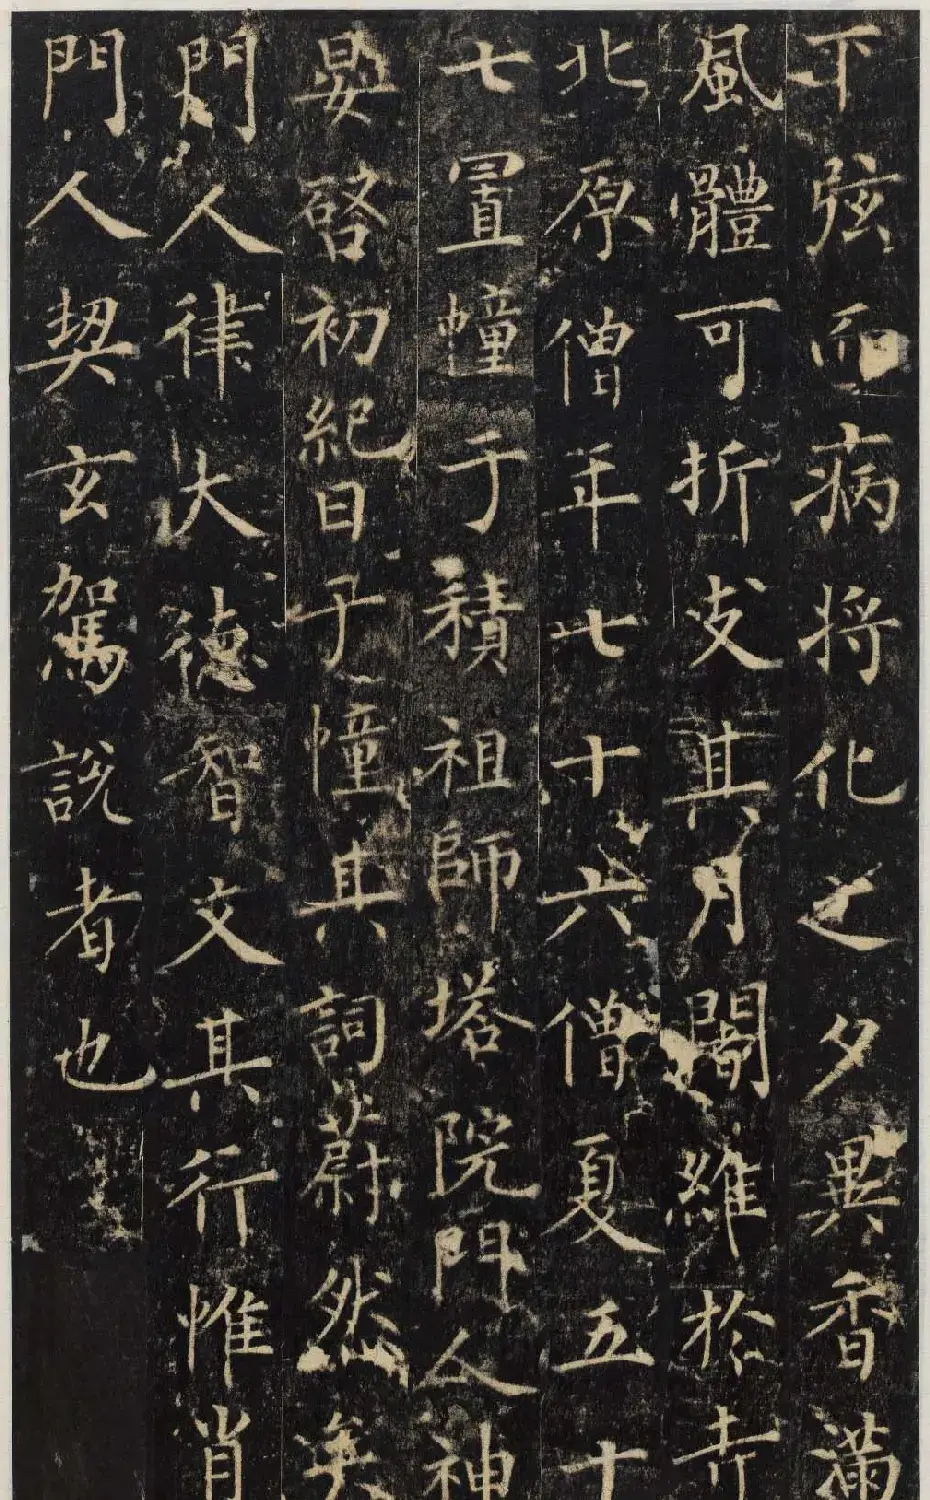 下弦而病將化之夕異香滿
風體可折支其月闍維於寺
北原僧年七十六僧夏五十
七置幢于積祖師塔院門人神
晏啓初紀日于幢其詞蔚然矣
門人律大德智文其行惟肖
門人契玄駕說者也